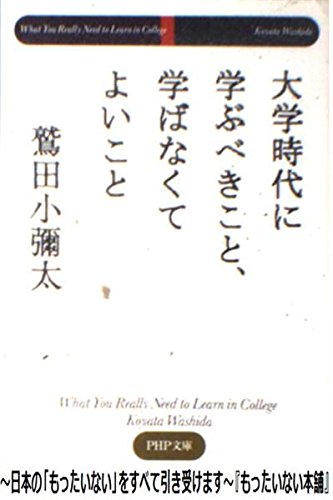 What You Really Need to Learn in College
Kovata Washida
大学時代に
学ぶべきこと、
学ばなくて
よいこと
鷲田小彌太
What You Really Need to Learn in College
Kovata Washida
PHP文庫
~日本の「もったいない」をすべて引き受けます~『もったいない本舗』